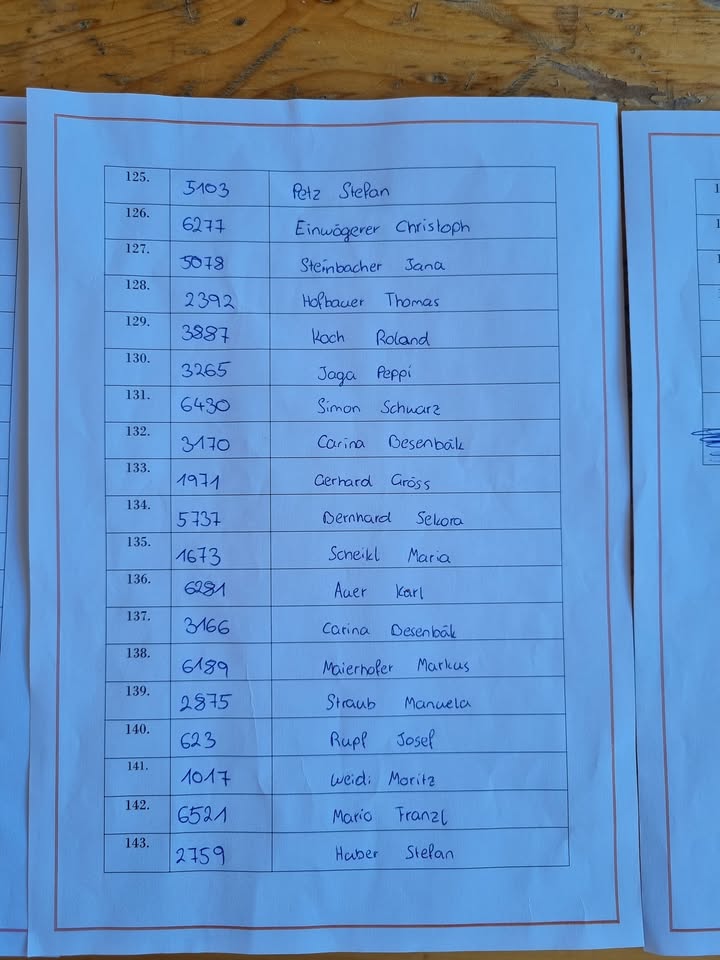 125. 5103 Petz Stefan
126. 6277 Einwögerer Christoph
127. 5078 Steinbacher Jana
128. 2392 Hofbauer Thomas
129. 3887 Koch Roland
130. 3265 Jaga Peppi
131. 6430 Simon Schwarz
132. 3170 Carina Besenbäk
133. 1971 Gerhard Gröss
134. 5737 Bernhard Sekora
135. 1673 Scheikl Maria
136. 6281 Auer Karl
137. 3166 Carina Besenbäk
138. 6189 Maierhofer Markus
139. 2875 Straub Manuela
140. 623 Rupf Josef
141. 1017 Weidi Moritz
142. 6521 Mario Franzl
143. 2759 Huber Stefan